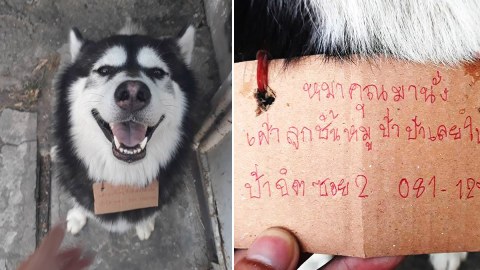 หมาคุณมานั่ง
เฝ้าลูกชิ้นหมู ป้า ป้าเลยให้
ป้าจิต ซอย 2 081-12